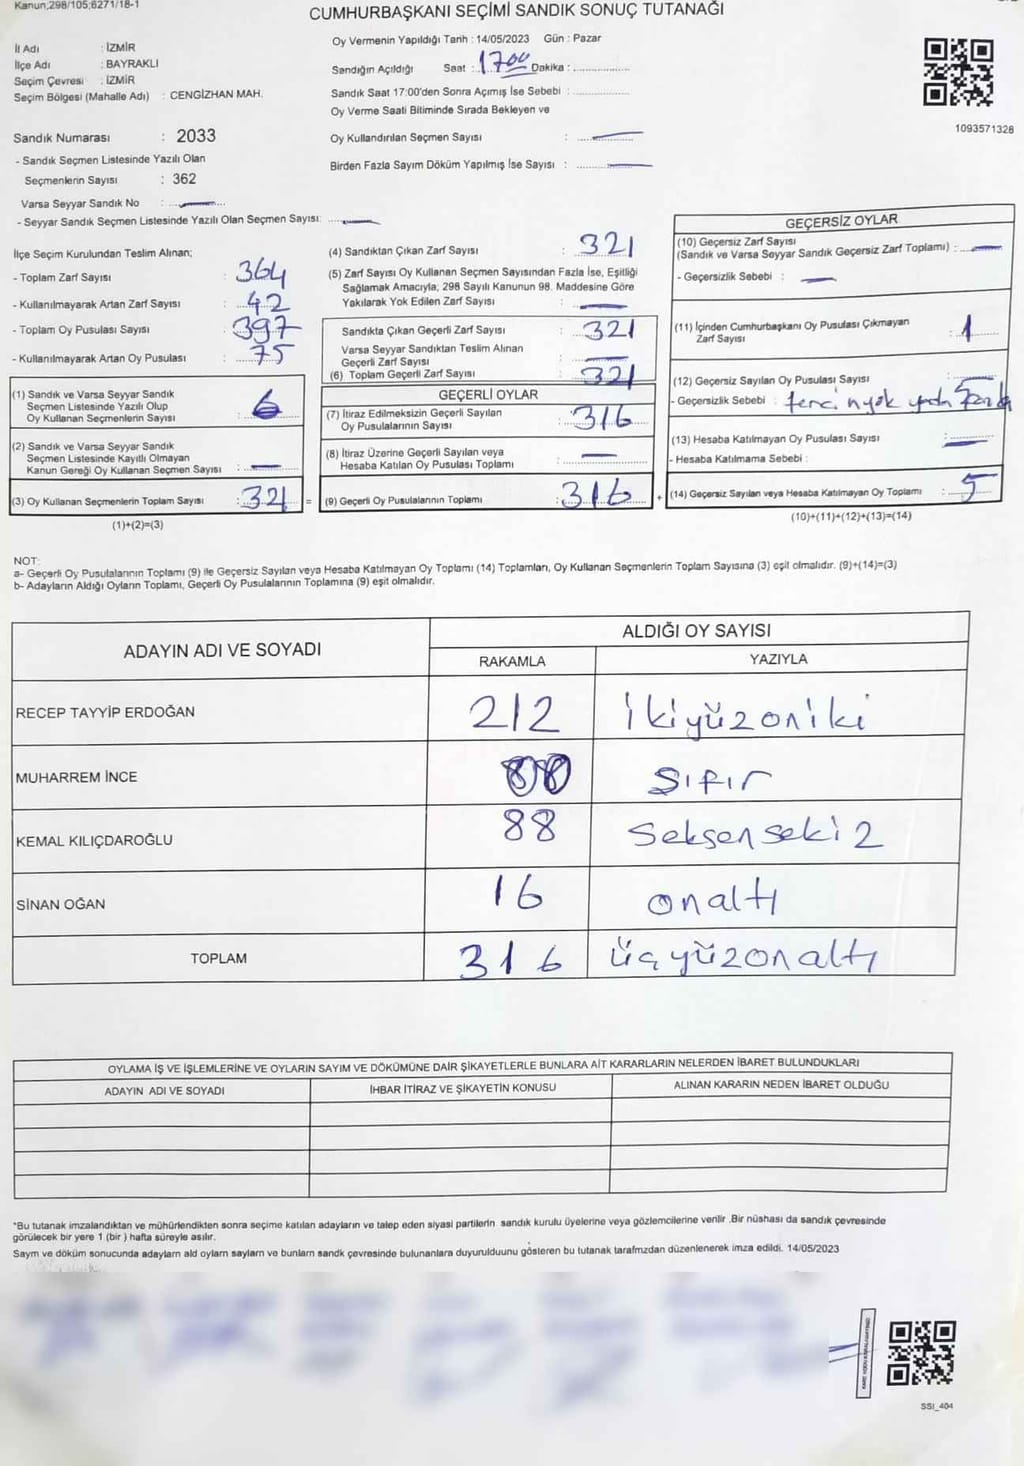 Kanun;298/105;6271/18-1
CUMHURBAŞKANI SEÇİMİ SANDIK SONUÇ TUTANAĞI
İl Adı : İZMİR
İlçe Adı : BAYRAKLI
Seçim Çevresi : İZMİR
Seçim Bölgesi (Mahalle Adı) : CENGİZHAN MAH.
Sandık Numarası : 2033
- Sandık Seçmen Listesinde Yazılı Olan
Seçmenlerin Sayısı : 362
Varsa Seyyar Sandık No :
- Seyyar Sandık Seçmen Listesinde Yazılı Olan Seçmen Sayısı:
Oy Vermenin Yapıldığı Tarih : 14/05/2023 Gün : Pazar
Sandığın Açıldığı Saat : 1700 Dakika :
Sandık Saat 17:00'den Sonra Açımış İse Sebebi :
Oy Verme Saati Bitiminde Sırada Bekleyen ve
Oy Kullandırılan Seçmen Sayısı :
Birden Fazla Sayım Döküm Yapılmış İse Sayısı :
1093571328
İlçe Seçim Kurulundan Teslim Alınan;
- Toplam Zarf Sayısı : 364
- Kullanılmayarak Artan Zarf Sayısı : 42
- Toplam Oy Pusulası Sayısı : 397
- Kullanılmayarak Artan Oy Pusulası : 75
(1) Sandık ve Varsa Seyyar Sandık
Seçmen Listesinde Yazılı Olup
Oy Kullanan Seçmenlerin Sayısı :
(2) Sandık ve Varsa Seyyar Sandık
Seçmen Listesinde Kayıtlı Olmayan
Kanun Gereği Oy Kullanan Seçmen Sayısı :
(3) Oy Kullanan Seçmenlerin Toplam Sayısı : 321 =
(1)+(2)=(3)
(4) Sandıktan Çıkan Zarf Sayısı : 321
(5) Zarf Sayısı Oy Kullanan Seçmen Sayısından Fazla İse, Eşitliği
Sağlamak Amacıyla; 298 Sayılı Kanunun 98. Maddesine Göre
Yakılarak Yok Edilen Zarf Sayısı :
Sandıkta Çıkan Geçerli Zarf Sayısı : 321
Varsa Seyyar Sandıktan Teslim Alınan
Geçerli Zarf Sayısı :
(6) Toplam Geçerli Zarf Sayısı : 321
GEÇERLİ OYLAR
(7) İtiraz Edilmeksizin Geçerli Sayılan
Oy Pusulalarının Sayısı : 316
(8) İtiraz Üzerine Geçerli Sayılan veya
Hesaba Katılan Oy Pusulası Toplamı :
(9) Geçerli Oy Pusulalarının Toplamı : 316 +
GEÇERSİZ OYLAR
(10) Geçersiz Zarf Sayısı
(Sandık ve Varsa Seyyar Sandık Geçersiz Zarf Toplamı) :
- Geçersizlik Sebebi :
(11) İçinden Cumhurbaşkanı Oy Pusulası Çıkmayan
Zarf Sayısı : 1
(12) Geçersiz Sayılan Oy Pusulası Sayısı :
- Geçersizlik Sebebi :
(13) Hesaba Katılmayan Oy Pusulası Sayısı :
- Hesaba Katılmama Sebebi :
(14) Geçersiz Sayılan veya Hesaba Katılmayan Oy Toplamı : 5
(10)+(11)+(12)+(13)=(14)
NOT:
a- Geçerli Oy Pusulalarının Toplamı (9) ile Geçersiz Sayılan veya Hesaba Katılmayan Oy Toplamı (14) Toplamları, Oy Kullanan Seçmenlerin Toplam Sayısına (3) eşit olmalıdır. (9)+(14)=(3)
b- Adayların Aldığı Oyların Toplamı, Geçerli Oy Pusulalarının Toplamına (9) eşit olmalıdır.
ADAYIN ADI VE SOYADI
ALDIĞI OY SAYISI
RAKAMLA YAZIYLA
RECEP TAYYİP ERDOĞAN 212 ikiyüzoniki
MUHARREM İNCE sıfır
KEMAL KILIÇDAROĞLU 88 seksenseki2
SİNAN OĞAN 16 onaltı
TOPLAM 316 üçyüzonaltı
OYLAMA İŞ VE İŞLEMLERİNE VE OYLARIN SAYIM VE DÖKÜMÜNE DAİR ŞİKAYETLERLE BUNLARA AİT KARARLARIN NELERDEN İBARET BULUNDUKLARI
ADAYIN ADI VE SOYADI İHBAR İTİRAZ VE ŞİKAYETİN KONUSU ALINAN KARARIN NEDEN İBARET OLDUĞU
*Bu tutanak imzalandıktan ve mühürlendikten sonra seçime katılan adayların ve talep eden siyasi partilerin sandık kurulu üyelerine veya gözlemcilerine verilir .Bir nüshası da sandık çevresinde
görülecek bir yere 1 (bir ) hafta süreyle asılır.
Saym ve döküm sonucunda adayların ald oyların sayların ve bunların sandk çevresinde bulunanlara duyurulduunu gösteren bu tutanak tarafmzdan düzenlenerek imza edildi. 14/05/2023
SSI_404